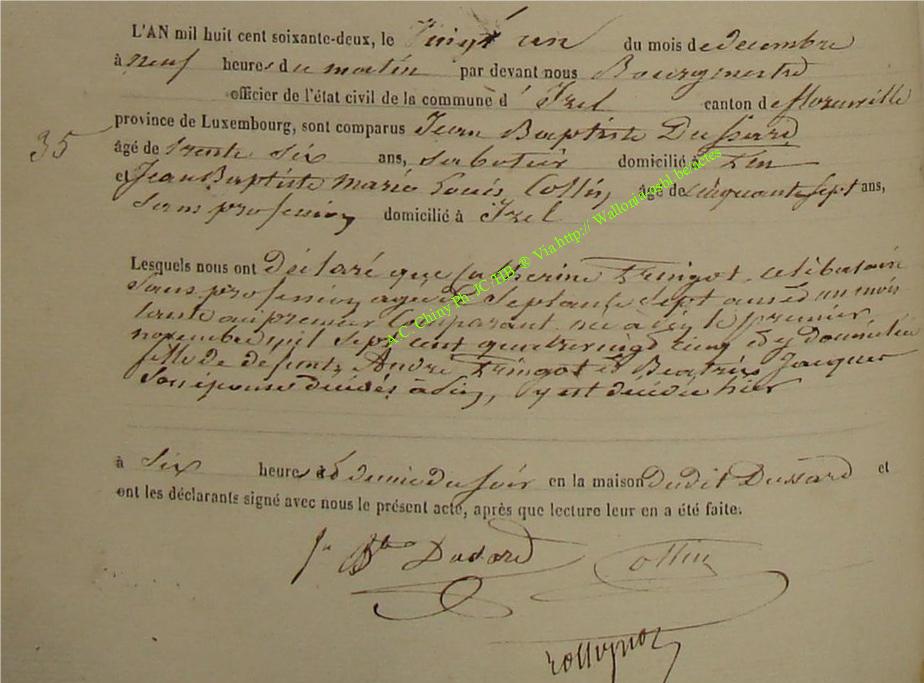 L'AN mil huit cent soixante-deux, le Vingt un du mois de decembre
à neuf heures du matin par devant nous Bourgmestre
officier de l'état civil de la commune d' Izel canton de florenville
35
province de Luxembourg, sont comparus Jean Baptiste Dussard
âgé de trente six ans, sabotier domicilié à
et Jean Baptiste Marie Louis Collin, âgé de cinquante sept ans,
sans profession domicilié à Izel
Lesquels nous ont déclaré que Catherine Fringot, celibataire
sans profession agée de septante sept ans et un mois
tante au premier Comparant née à le premier
novembre mil sept cent quatre vingt cinq et y domiciliée
fille de defunts André Fringot et Beatrix Jacques
son épouse décédés à y est décédée hier
à six heures et demie du soir en la maison dudit Dussard et
ont les déclarants signé avec nous le présent acte, après que lecture leur en a été faite.
J Bte Dussard Collin
rossignon
A.C. Chiny Ph. JC /HB ® Via http:// Wallonia asbl be/actes